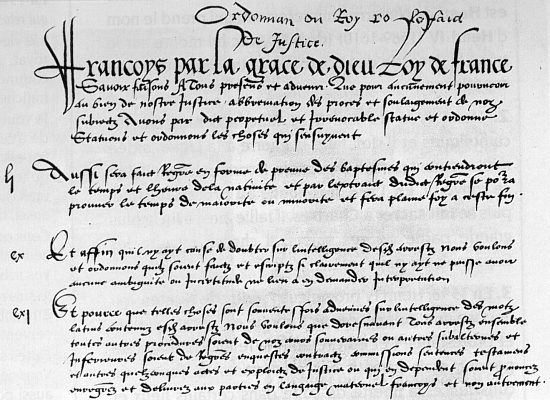 Ordonnan du Roy
De Justice.
Francoys par la grace de dieu Roy de france
Savoir faisons A Tous presens et advenir Que pour aucunement pourveoir
au bien de nostre Justice abbreviation des proces et soulagement de noz
subiectz Avons par dict perpetuel et irrevocable statué et ordonné
Statuons et ordonnons les choses qui sensuyvent
Aussi sera faict Regre en forme de preuve des baptesmes qui contiendront
le temps et lheure dela nativite et par lextraict dudict Regre se pora
prouver le temps de maiorite ou minorite et fera plaine foy a ceste fin
cx Et affin quil ny ayt cause de doubter sur lintelligence desd arrestz Nous voulons
et ordonnons quilz soient faictz et escriptz si clairement quil ny ayt ne puisse avoir
aucune ambiguite ou incertitude ne lieu a en demander Interpretation
cxi Et pource que telles choses sont souventesfois advenues sur lintelligence des motz
latins contenuz esd arrestz Nous voulons que doresnavant Tous arrestz ensemble
toutes autres procedures soient de noz cours souveraines ou autres subalternes et
Inferieures soient de Regres enquestes contractz commissions sentences testamens
et autres quelzconques actes et exploictz de Justice ou qui en dependent soient pronocez
enregrez et delivrez aux parties en langage maternel francoys et non autrement.